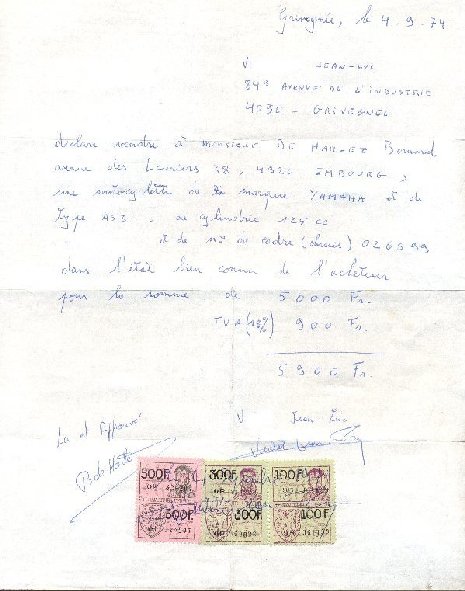 Grivegnée, le 4.9.74
V JEAN-LUC
84A AVENUE DE L'INDUSTRIE
4030 - GRIVEGNEE
déclare vendre à monsieur DE HARLEZ Bernard
avenue des 28, 4920 EMBOURG,
une motocyclette de la marque YAMAHA et de
type AS3, de cylindrée 125 cc
et de n° de cadre (chassis) 020099
dans l'état bien connu de l'acheteur
pour la somme de 5000 Fr.
TVA (18%) 900 Fr.
5900 Fr.
V Jean Luc
Lu et Approuvé
500F 300F 100F
500F 300F 100F